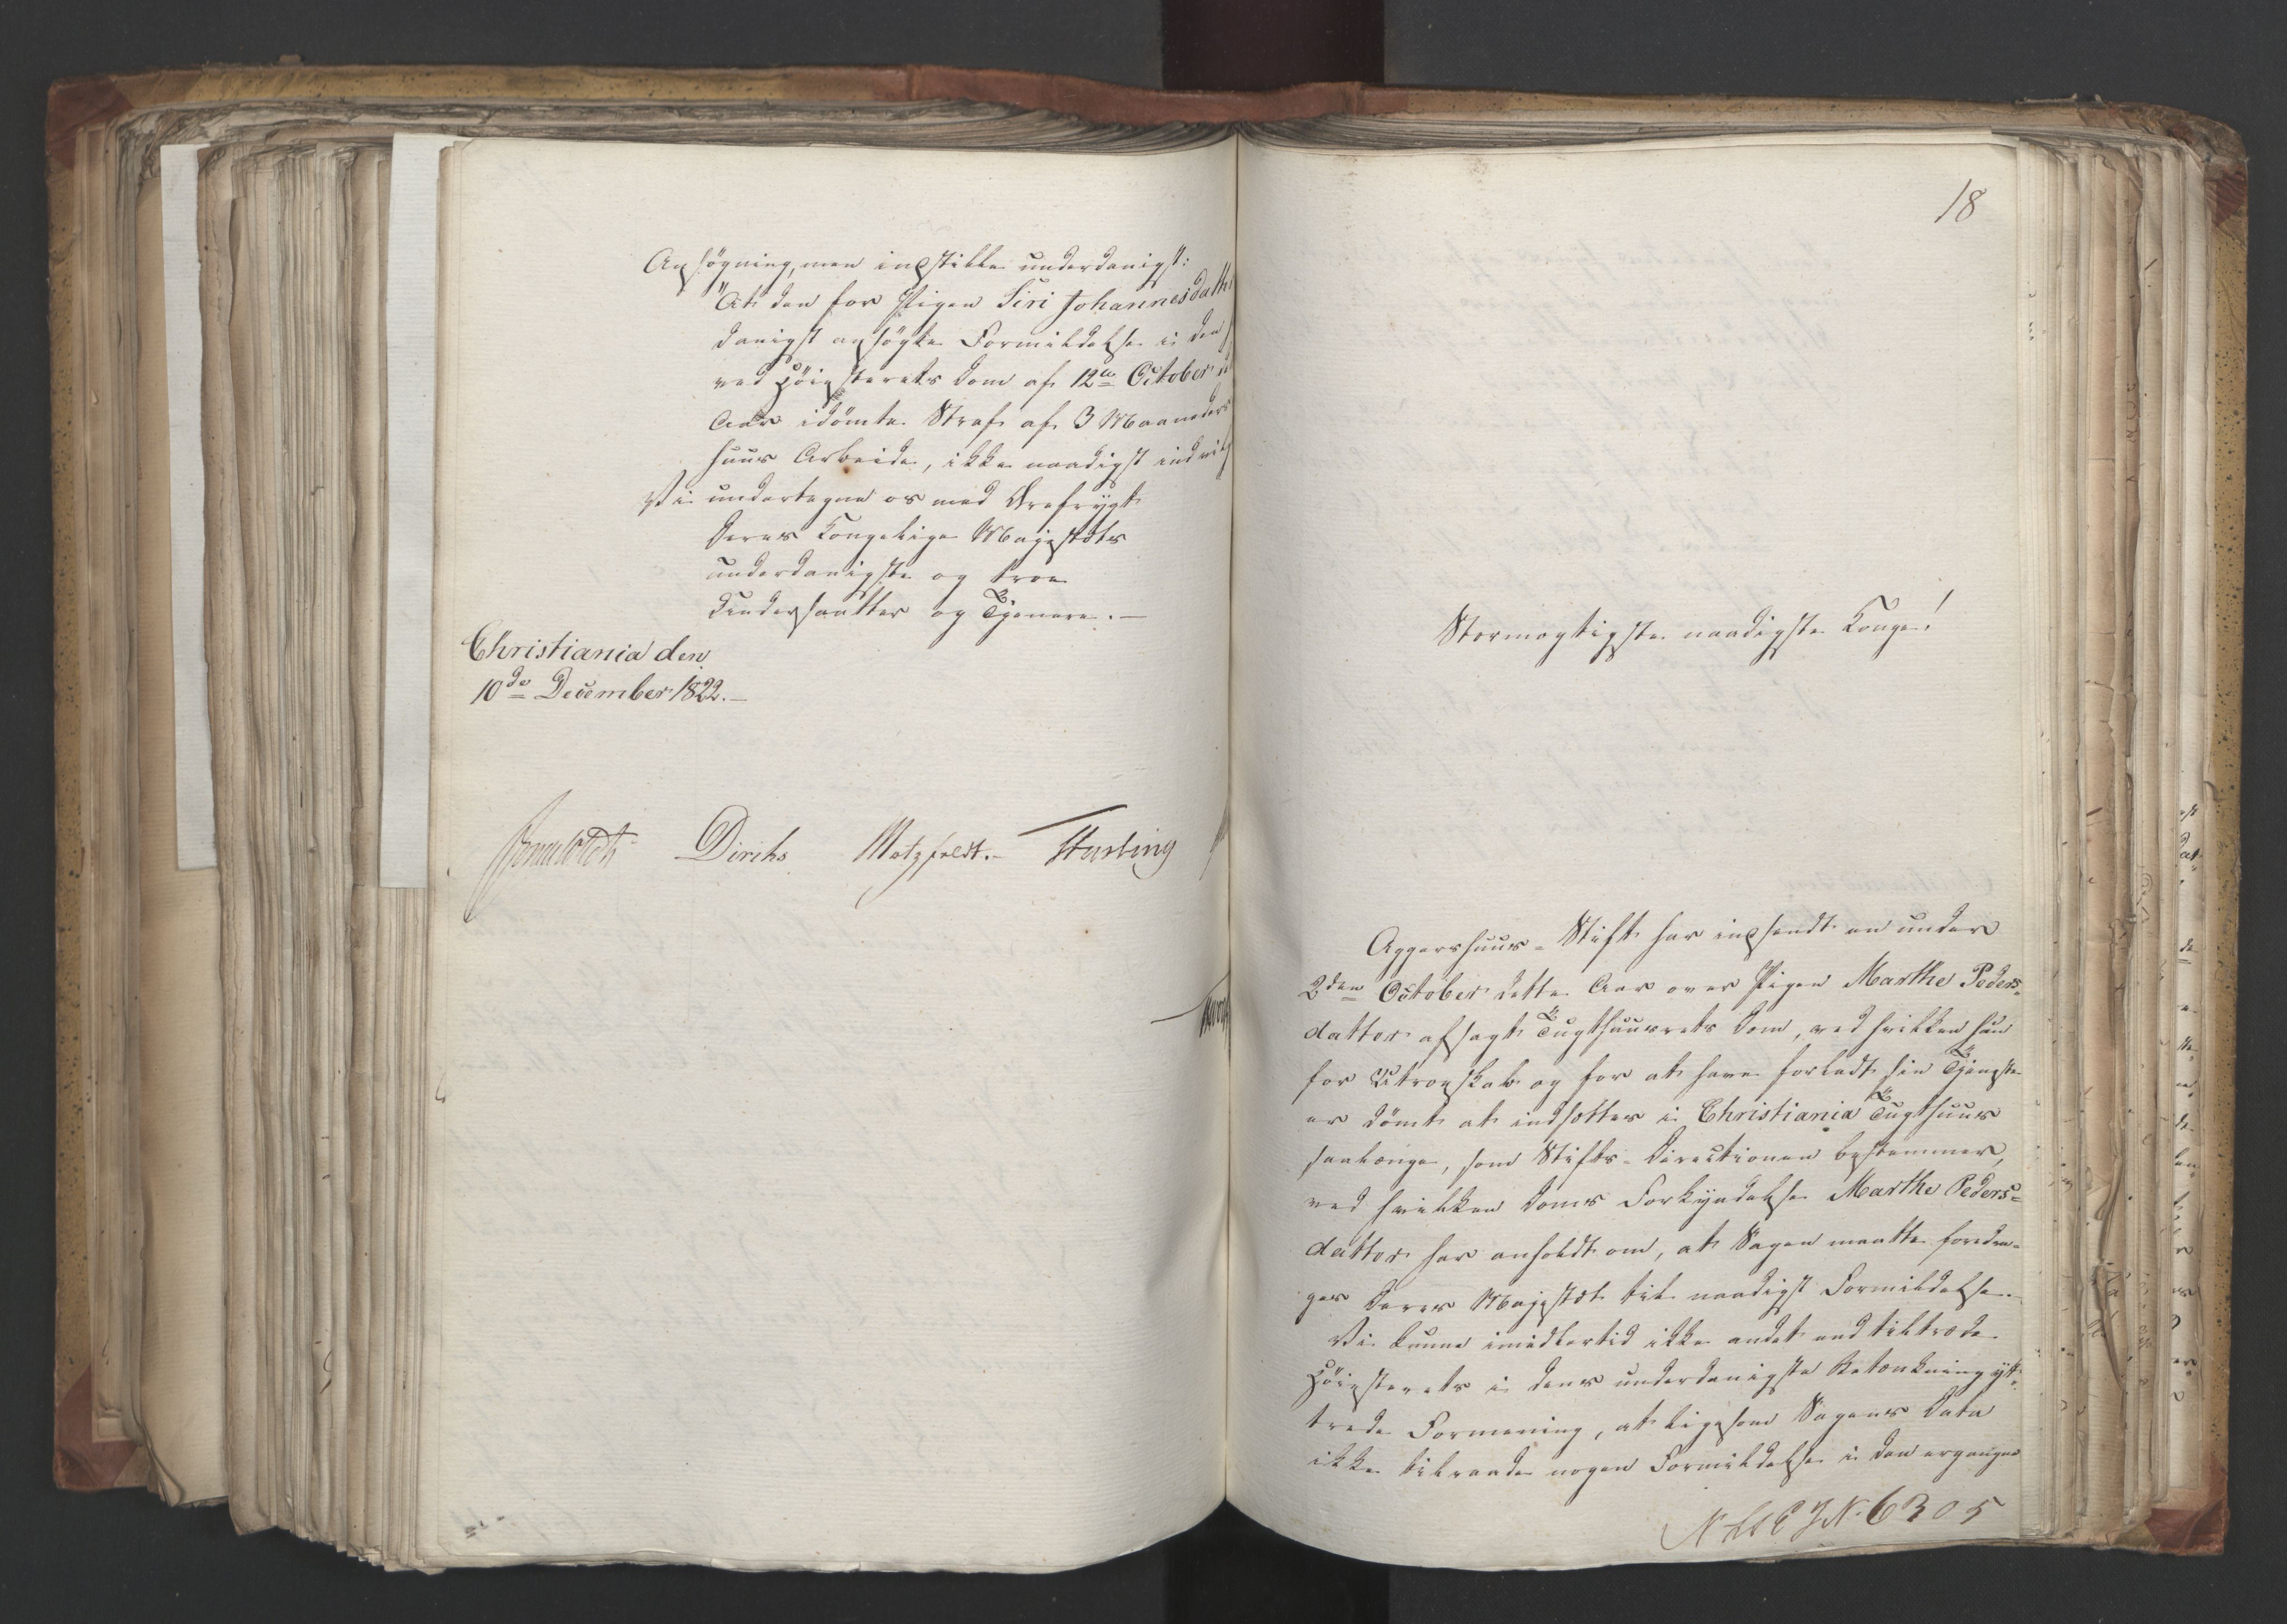 Ansøgning, men indstille underdanigst:
"At den for Pigen Siri Johannesdatter
danigst ansøgte Formildelse i den
ved Høiesterets Dom af 12te October
Aar idømte Straf af 3 Maaneders
huus Arbeide, ikke naadigst indvil
Vi undertegne os med Ærefrygt
Deres Kongelige Majestæts
underdanigste og troe
Undersaatter og Tjenere. —
Christiania den
10de December 1822. —
Diriks Motzfeldt. Husting
18
Stormægtigste naadigste Konge!
Aggershuus-Stift har indsendt en under
2den October dette Aar over Pigen Marthe Peders-
datter afsagt Tugthuusrets Dom, ved hvilken hun
for Utroeskab og for at have forladt sin Tjeneste
er dömt at indsættes i Christiania Tugthuus
saalænge, som Stifts-Directionen bestemmer,
ved hvilken Doms Forkyndelse Marthe Peders-
datter har anholdt om, at Sagen maatte foredra-
ges Deres Majestæt til naadigst Formildelse.
Vi kunne imidlertid ikke andet end tiltræde
Høiesterets i dens underdanigste Betænkning yt-
trede Formening, at ligesom Sagens Data
ikke tilraade nogen Formildelse i den ergangne
N. 6305